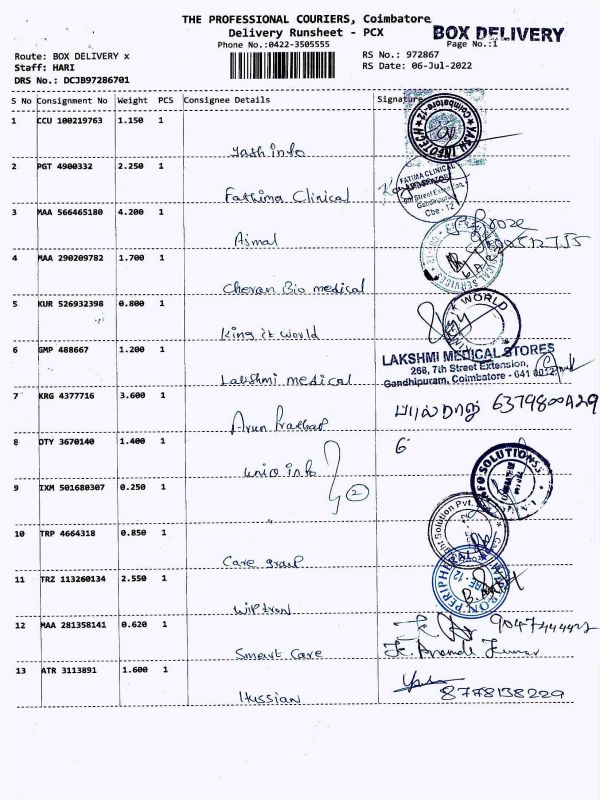 THE PROFESSIONAL COURIERS, Coimbatore
Delivery Runsheet - PCX
BOX DELIVERY
Phone No.:0422-3505555
Page No.:1
Route: BOX DELIVERY x
RS No.: 972867
Staff: HARI
RS Date: 06-Jul-2022
DRS No.: DCJB97286701
S No Consignment No Weight PCS Consignee Details Signature
1 CCU 100219763 1.150 1
Yash info
YASH INFOTECH Coimbatore-12
2 PGT 4900332 2.250 1
Fathima Clinical
FATIMA CLINICAL
Street Extension,
Gandhipuram
Cbe - 12
3 MAA 566465180 4.200 1
Ajmal
4 MAA 290209782 1.700 1
Cheran Bio medical
5 KUR 526932398 0.800 1
King it world
WORLD
6 GMP 488667 1.200 1
Lakshmi medical
LAKSHMI MEDICAL STORES
268, 7th Street Extension,
Gandhipuram, Coimbatore - 641 012
7 KRG 4377716 3.600 1
Arun Prakash
8 DTY 3670140 1.400 1
unio info
INFO SOLUTIONS
9 IXM 501680307 0.250 1
"
2
10 TRP 4664318 0.850 1
Care group
Solution Pvt.
11 TRZ 113260134 2.550 1
Wiptron
WIPTRON PERIPHERAL
12 MAA 281358141 0.620 1
Smart Care
9047444422
13 ATR 3113891 1.600 1
Hussian
8778138229